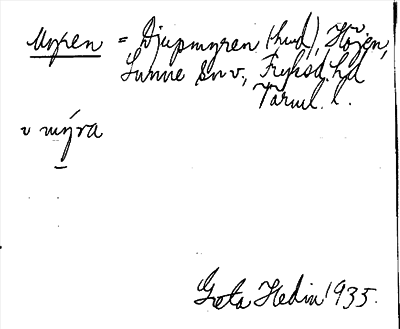 Myren = Djupmyren (hwd), Höjen,
Sunne sn v., Fryksd. hd
Värml. l.
v mýra
Greta Hedin 1935.